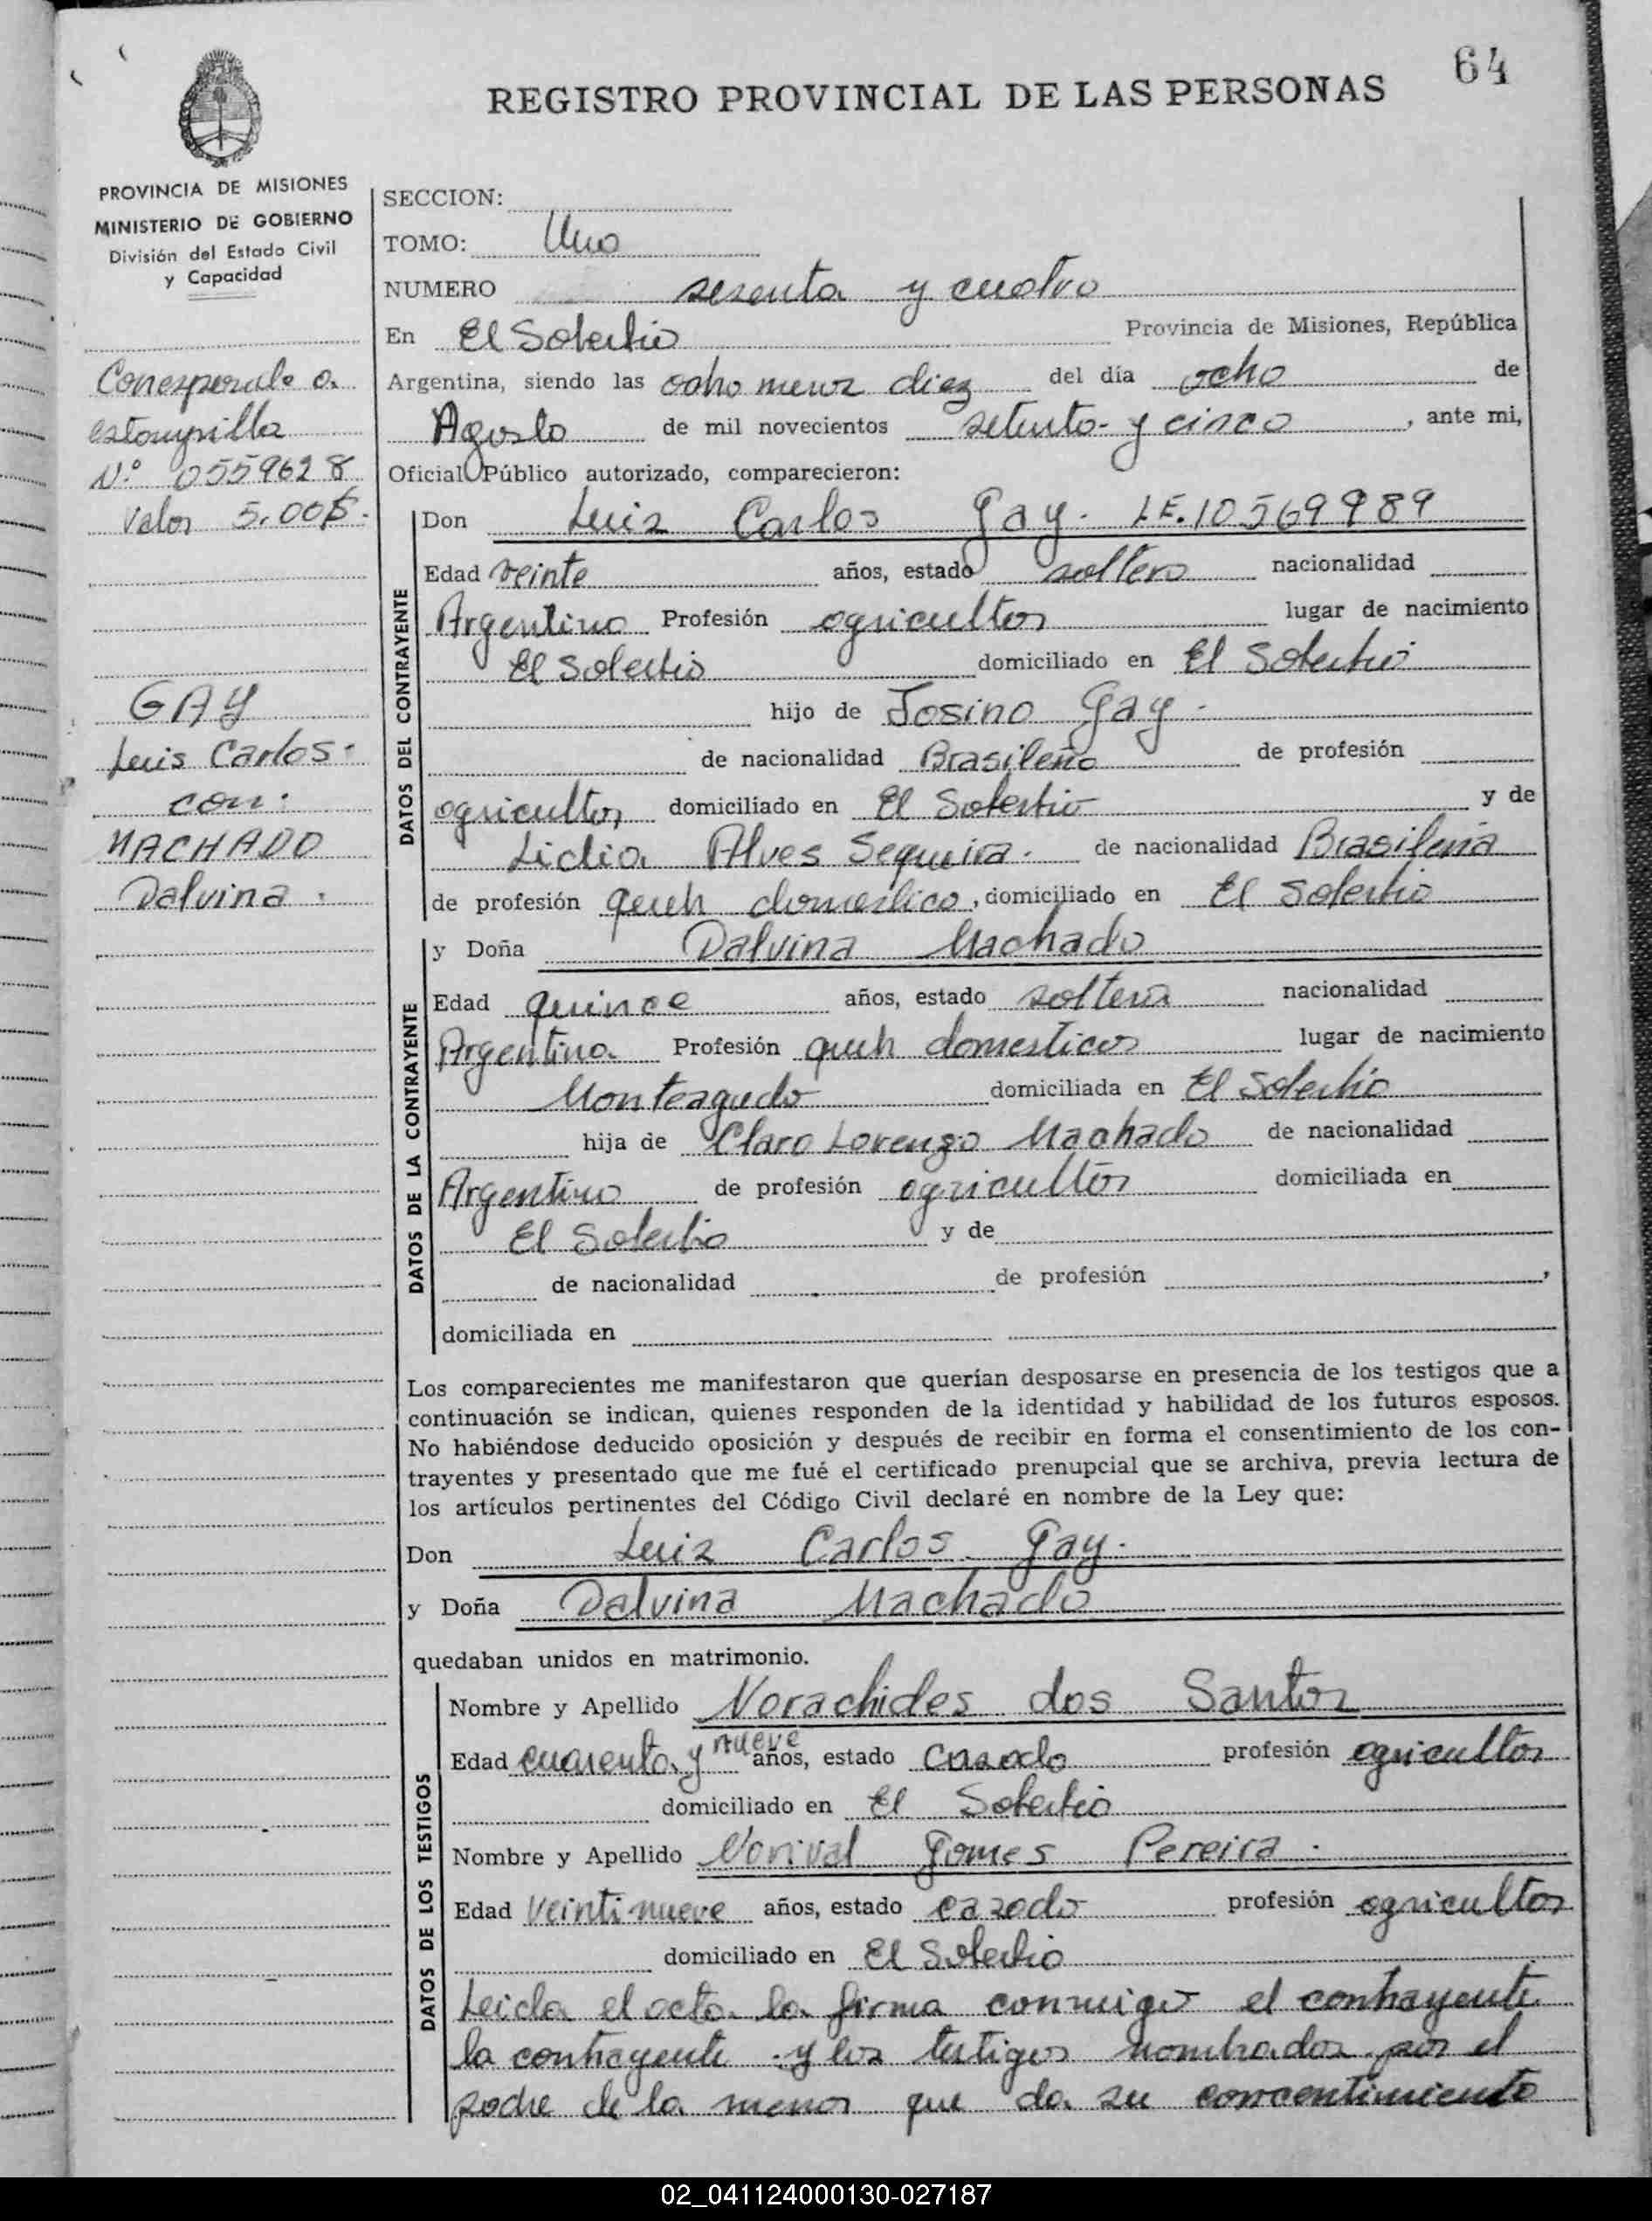 64
REGISTRO PROVINCIAL DE LAS PERSONAS
PROVINCIA DE MISIONES
MINISTERIO DE GOBIERNO
División del Estado Civil
y Capacidad
SECCION:
TOMO: Uno
NUMERO sesenta y cuatro
En El Soberbio Provincia de Misiones, República
Argentina, siendo las ocho menos diez del día ocho de
Agosto de mil novecientos setenta y cinco, ante mi,
Oficial Público autorizado, comparecieron:
Corresponde a
estampilla
Nº 0559628
Valor 5.00$.
GAY
Luis Carlos.
con.
MACHADO
Dalvina.
DATOS DEL CONTRAYENTE
Don Luiz Carlos Gay. LE.10569989
Edad veinte años, estado soltero nacionalidad
Argentino Profesión agricultor lugar de nacimiento
El Soberbio domiciliado en El Soberbio
hijo de Josino Gay.
de nacionalidad Brasileño de profesión
agricultor domiciliado en El Soberbio y de
Lidia Alves Sequeira. de nacionalidad Brasileña
de profesión queh domestico, domiciliado en El Soberbio
DATOS DE LA CONTRAYENTE
y Doña Dalvina Machado
Edad quince años, estado soltera nacionalidad
Argentina Profesión queh domesticos lugar de nacimiento
Monteagudo domiciliada en El Soberbio
hija de Claro Lorenzo Machado de nacionalidad
Argentino de profesión agricultor domiciliada en
El Soberbio y de
de nacionalidad de profesión ,
domiciliada en
Los comparecientes me manifestaron que querían desposarse en presencia de los testigos que a
continuación se indican, quienes responden de la identidad y habilidad de los futuros esposos.
No habiéndose deducido oposición y después de recibir en forma el consentimiento de los con-
trayentes y presentado que me fué el certificado prenupcial que se archiva, previa lectura de
los artículos pertinentes del Código Civil declaré en nombre de la Ley que:
Don Luiz Carlos Gay.
y Doña Dalvina Machado
quedaban unidos en matrimonio.
DATOS DE LOS TESTIGOS
Nombre y Apellido Norachides dos Santos
Edad cuarenta y nueve años, estado casado profesión agricultor
domiciliado en El Soberbio
Nombre y Apellido Norival Gomes Pereira.
Edad veintinueve años, estado cazado profesión agricultor
domiciliado en El Soberbio
Leida el acta la firma conmigo el contrayente
la contrayente y los testigos nombrados por el
padre de la menor que da su concentimiento
02_041124000130-027187